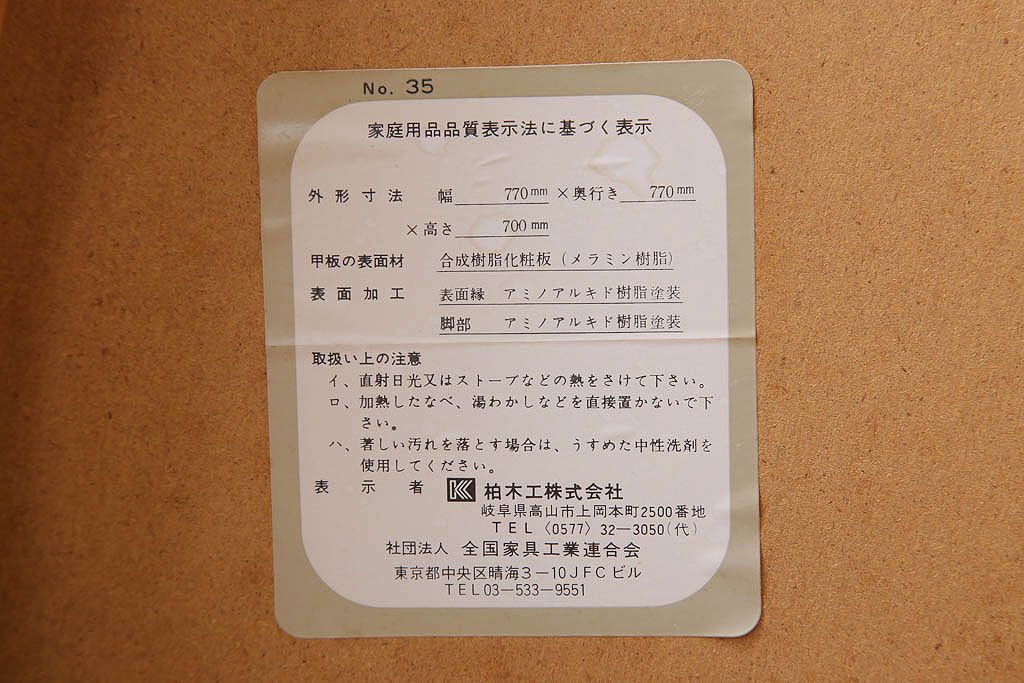 No. 35
家庭用品品質表示法に基づく表示
外形寸法 幅 770mm ×奥行き 770mm
×高さ 700mm
甲板の表面材 合成樹脂化粧板（メラミン樹脂）
表面加工 表面縁 アミノアルキド樹脂塗装
脚部 アミノアルキド樹脂塗装
取扱い上の注意
イ、直射日光又はストーブなどの熱をさけて下さい。
ロ、加熱したなべ、湯わかしなどを直接置かないで下
さい。
ハ、著しい汚れを落とす場合は、うすめた中性洗剤を
使用してください。
表示者 柏木工株式会社
岐阜県高山市上岡本町2500番地
TEL〈0577〉32―3050(代)
社団法人 全国家具工業連合会
東京都中央区晴海3－10JFCビル
TEL03―533―9551